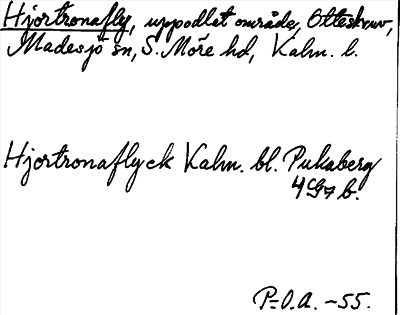 Hjortronafly, uppodlat område, Otteskruv,
Madesjö sn, S. Möre hd, Kalm. l.
Hjortronaflyck Kalm. bl. Pukaberg
4G7 b.
P-O.A. -55.